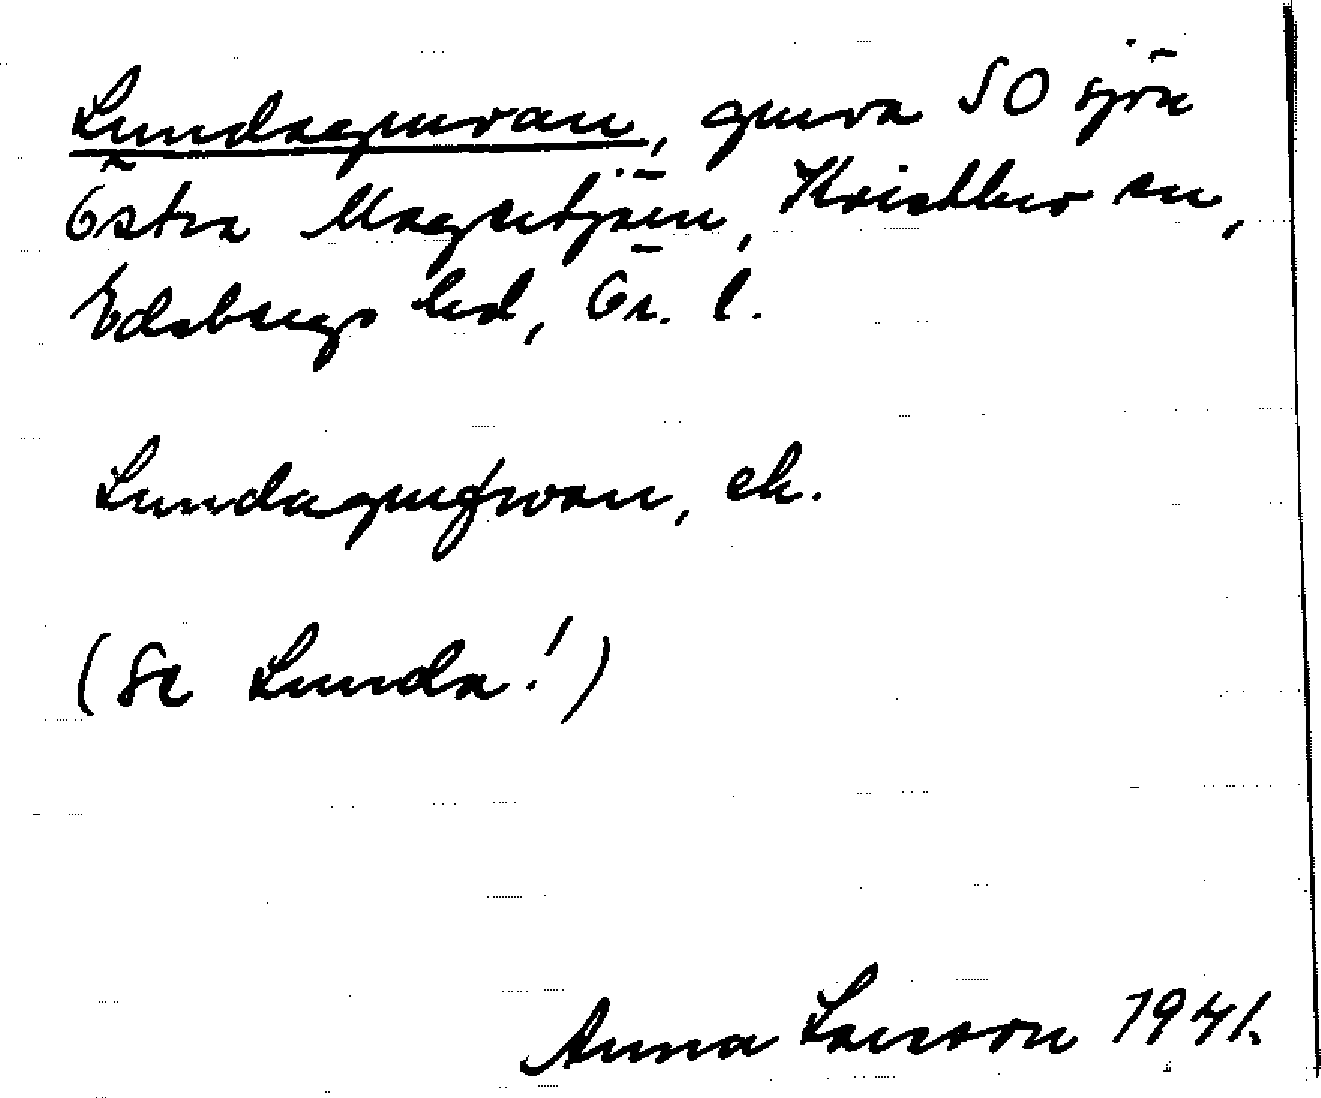 Lundagruvan, gruva SO sjön
Östra Magsjötjärn, Kvistbro sn,
Edsbergs hd, Ör. l.
Lundagrufvan, ek.
(Se Lunda!)
Anna Larsson 1941.